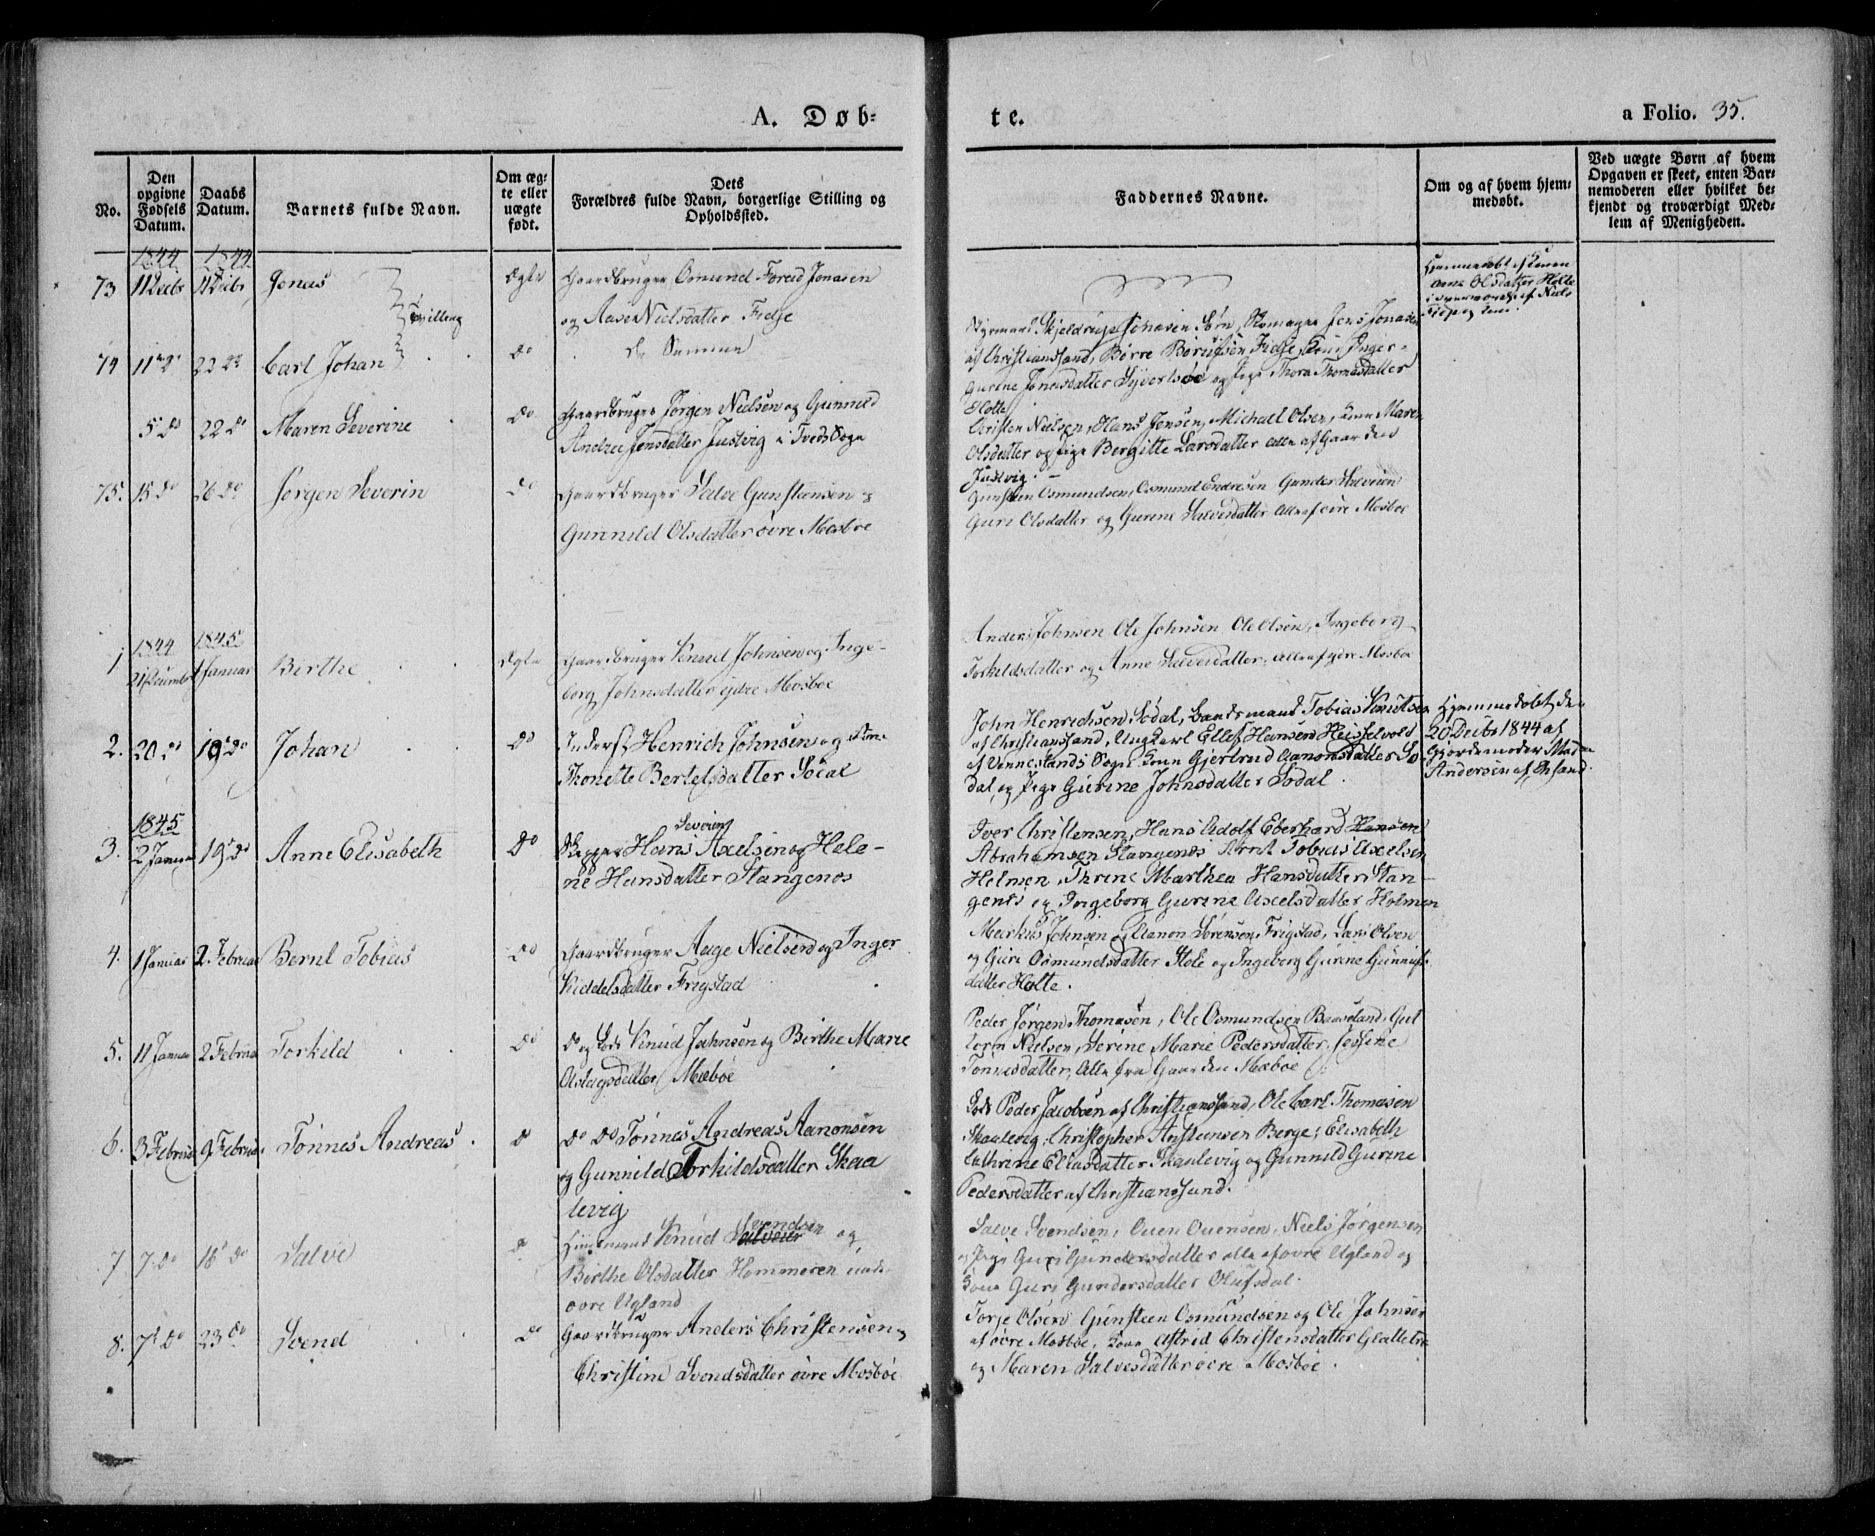 A. Døb-
te.
a Folio. 35.
No.
Den opgivne Fødsels Datum.
Daabs Datum.
Barnets fulde Navn.
Om æg-te eller uægte født.
Dets
Forældres fulde Navn, borgerlige Stilling og Opholdssted.
Faddernes Navne.
Om og af hvem hjem-medøbt.
Ved uægte Børn af hvem Opgaven er skeet, enten Bar-nemoderen eller hvilket be-kjendt og troværdigt Med-lem af Menigheden.
1844 1844
73 11 Decbr 11 Decbr Jonas Ægte Gaardbruger Osmund Jonasen
og Aase Nielsdatter Fidje
Tvilling
Hjemmedøbt af Konen
Anne Olsdatter Holte
74 11 do 22 do Carl Johan do de Samme
Skomager Jens Jonasen
af Christiansand, Børre Fidje, Kone Inger
Gurine Jonasdatter og Pige Thora Thomasdatter
Holte
5 do 22 do Maren Severine do Gaardbruger Jørgen Nielsen og Gunnild
Andrea Jensdatter Justvig i Tveds Sogn
Christen Nielsen, Hans Jensen, Michael Olsen, Kone Maren
Olsdatter og Pige Bergitte Larsdatter alle af Gaarden
Justvig.
75. 15 do 26 do Jørgen Severin do Gaardbruger Salve Gunstensen og
Gunnild Olsdatter øvre Mosbøe
Gunsten Osmundsen, Osmund Endresen Gunder Salvesen
Guri Olsdatter og Gurine Salvesdatter alle af øvre Mosbøe
1844 1845
1 21 Decembr 1 Januar Birthe Ægte Gaardbruger Knud Johnsen og Inge-
borg Johnsdatter ydre Mosbøe
Anders Johnsen Ole Johnsen Ole Olsen, Ingeborg
Torkildsdatter og Anne Salvesdatter, alle af ydre Mosbøe
2. 20 do 19 do Johan do Inderst Henrich Johnsen og
Thonette Bertelsdatter Sødal
John Henrichsen Sødal, Landsmand Tobias Knutsen
af Christiansand, Ungkarl Ellef Hansen Heisselvold
af Venneslands Sogn Kone Gjertrud Aanonsdatter Sø
dal, og Pige Gurine Johnsdatter Sødal.
Hjemmedøbt den
20 Decbr 1844 af
Gjordemoder Mad
Andersen af Chsand.
1845
3. 2 Januar 19 do Anne Elisabeth do Skipper Hans Severin Axelsen og Hele-
ne Hansdatter Stangenes
Iver Christensen, Hans Adolf Eberhard Hansen
Abrahamsen Stangenes Arnt Tobias Axelsen
Holmen, Thrine Marthea Hansdatter Stan-
genes og Ingeborg Gurine Axelsdatter Holmen
4. 1 Januar 2 Februar Bernt Tobias do Gaardbruger Aage Nielsen og Inger
Kiddelsdatter Frigstad
Markus Johnsen og Aanon Sørensen Frigstad, Lars Olsen
og Guri Osmundsdatter Stole og Ingeborg Gurine Gunnild-
datter Holte.
5. 11 Januar 2 Februar Torkild do do og Lods Knud Jahnsen og Birthe Marie
Aslagsdatter Mæbøe
Peder Jørgen Thomasen, Ole Osmundsen Baaseland, Gut
torm Nielsen, Serine Marie Pedersdatter, Jessine
Tønnesdatter, Alle fra Gaarden Mæbøe
6. 3 Februar 9 Februar Tønnes Andreas do do do Tønnes Andreas Aanonsen
og Gunnild Torkildsdatter Skaa
levig
Lods Peder Jacobsen af Christiansand, Ole Carl Thomasen
Skaalevig, Christopher Anstensen Berge, Elisabeth
Cathrine Eliasdatter Skaalevig og Gunnild Gurine
Pedersdatter af Christiansand.
7 7 do 16 do Salve do Huusmand Knud Svendsen og
Birthe Olsdatter Hommeren under
øvre Ugland
Salve Svendsen, Ouen Ouensen, Niels Jørgensen
og Pige Guri Gundersdatter alle af øvre Ugland og
Kone Guri Gundersdatter Olufsdal.
8. 7 do 23 do Svend do Gaardbruger Anders Christensen og
Christine Svendsdatter øvre Mosbøe
Torje Olsen Gunsteen Osmundsen og Ole Jahnsen
af øvre Mosbøe, Kone Astrid Christensdatter
og Maren Salvesdatter øvre Mosbøe.